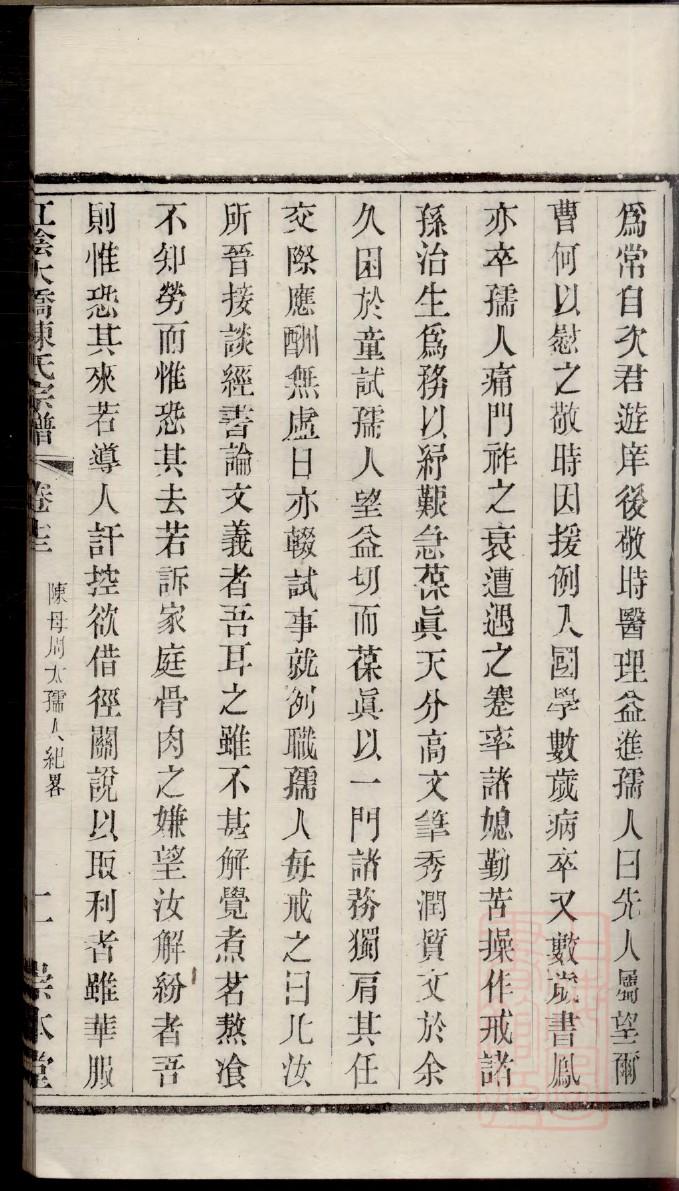 爲常自次君遊庠後敬時醫理益進孺人曰先人屬望爾
曹何以慰之敬時因援例入國學數歲病卒又數歲書鳳
亦卒孺人痛門祚之衰遭遇之蹇率諸媳勤苦操作戒諸
孫治生爲務以紓艱急葆眞天分高文筆秀潤質文於余
久困於童試孺人望益切而葆眞以一門諸務獨肩其任
交際應酬無虛日亦輟試事就例職孺人每戒之曰凡汝
所晉接談經書論文義者吾耳之雖不甚解覺煮茗熬飡
不知勞而惟恐其去若訴家庭骨肉之嫌望汝解紛者吾
則惟恐其來若導人訐控欲借徑關說以取利者雖華服
江陰大橋陳氏宗譜 卷十三 陳母周太孺人紀畧 二